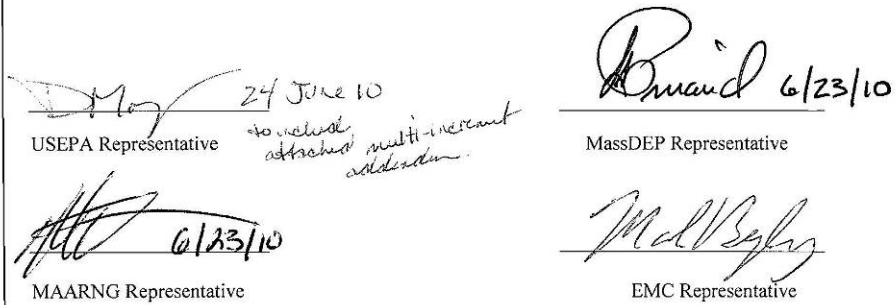 24 June 10
USEPA Representative
to include
attached multi-increment
addendum.
6/23/10
MassDEP Representative
6/23/10
MAARNG Representative
EMC Representative